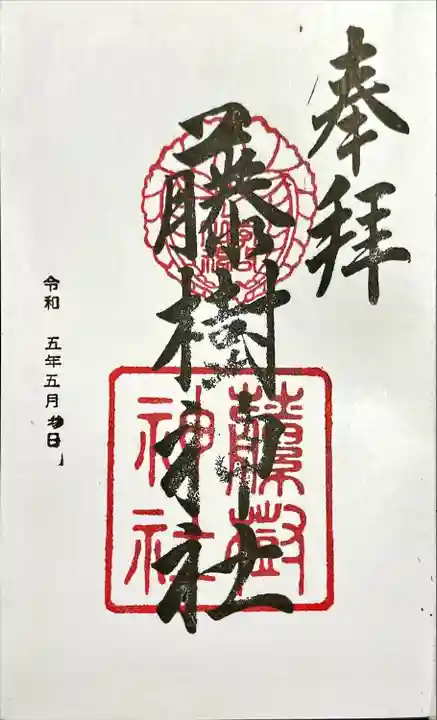 奉拝
藤樹神社
藤樹
神社
令和 五年五月 日